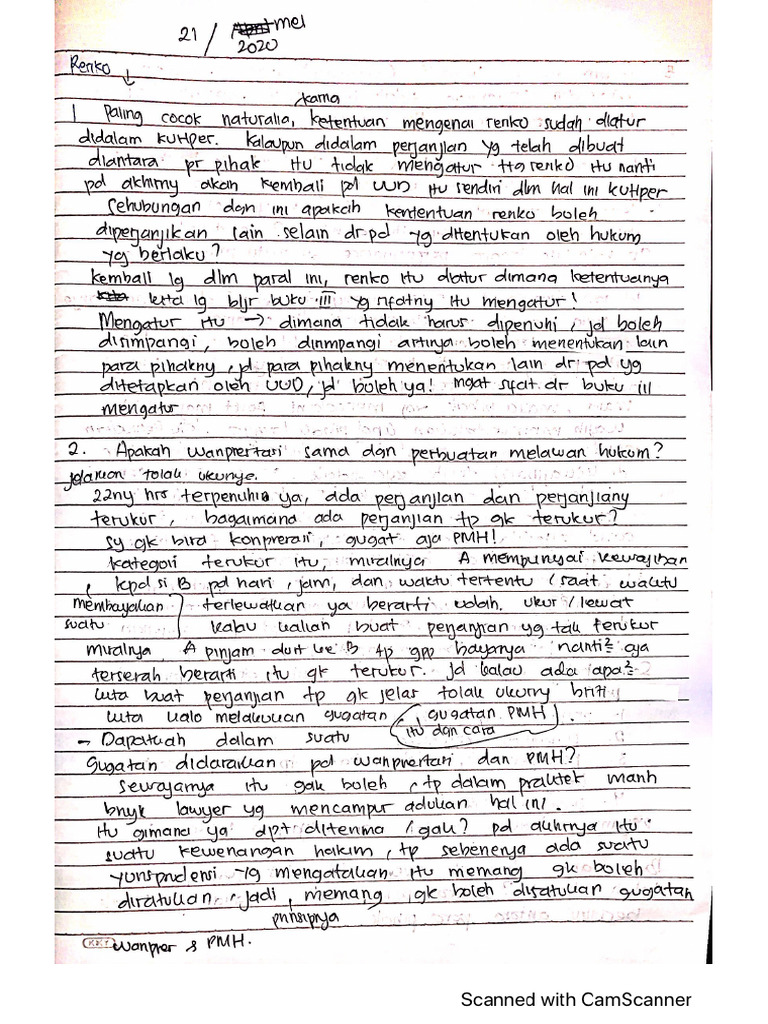 21 / April mei
2020
Renko
↓
karna
1 Paling cocok naturalia, ketentuan mengenai renko sudah diatur
didalam KUHper. Kalaupun didalam perjanjian yg telah dibuat
diantara pr pihak itu tidak mengatur ttg renko itu nanti
pd akhirny akan kembali pd UUD itu sendiri dlm hal ini KUHper
Sehubungan dgn ini apakah kententuan renko boleh
diperjanjikan lain selain drpd yg ditentukan oleh hukum
yg berlaku?
kembali lg dlm pasal ini, renko itu diatur dimana ketentuanya
kita lg bljr buku III yg sifatny itu mengatur!
Mengatur itu → dimana tidak harus dipenuhi, jd boleh
disimpangi, boleh disimpangi artinya boleh menentukan lain
para pihakny, jd para pihakny menentukan lain dr pd yg
ditetapkan oleh UUD, jd boleh ya! ingat sifat dr buku III
mengatur
2. Apakah wanprestasi sama dgn perbuatan melawan hukum?
jelaskan tolak ukurnye.
22ny hrs terpenuhi ya, ada perjanjian dan perjanjiany
terukur, bagaimana ada perjanjian tp gk terukur?
sy gk bisa konprerasi, gugat aja PMH!
kategori terukur itu, misalnya A mempunyai kewajiban
kpd si B pd hari, jam, dan waktu tertentu (saat waktu
membayakan terlewatkan ya berarti udah ukur/lewat
suatu kalau kalian buat perjanjian yg tak terukur
misalnya A pinjam duit ke B tp gpp bayarnya nanti² aja
terserah berarti itu gk terukur. jd kalau ada apa²
kita buat perjanjian tp gk jelas tolak ukurny brrti
kita kalo melakukan gugatan, gugatan PMH
itu dgn cara
- Dapatkah dalam suatu
Gugatan didasarkan pd wanprestasi dan PMH?
Sewajarnya itu gak boleh, tp dalam praktek masih
bnyk lawyer yg mencampur adukan hal ini.
itu gimana ya dpt diterima / gak? pd akhrnya itu
suatu kewenangan hakim, tp sebenenya ada suatu
yurisprudensi yg mengatakan itu memang gk boleh
disatukan, jadi, memang gk boleh disatukan gugatan
prinsipnya
KKY wanpres & PMH.
Scanned with CamScanner